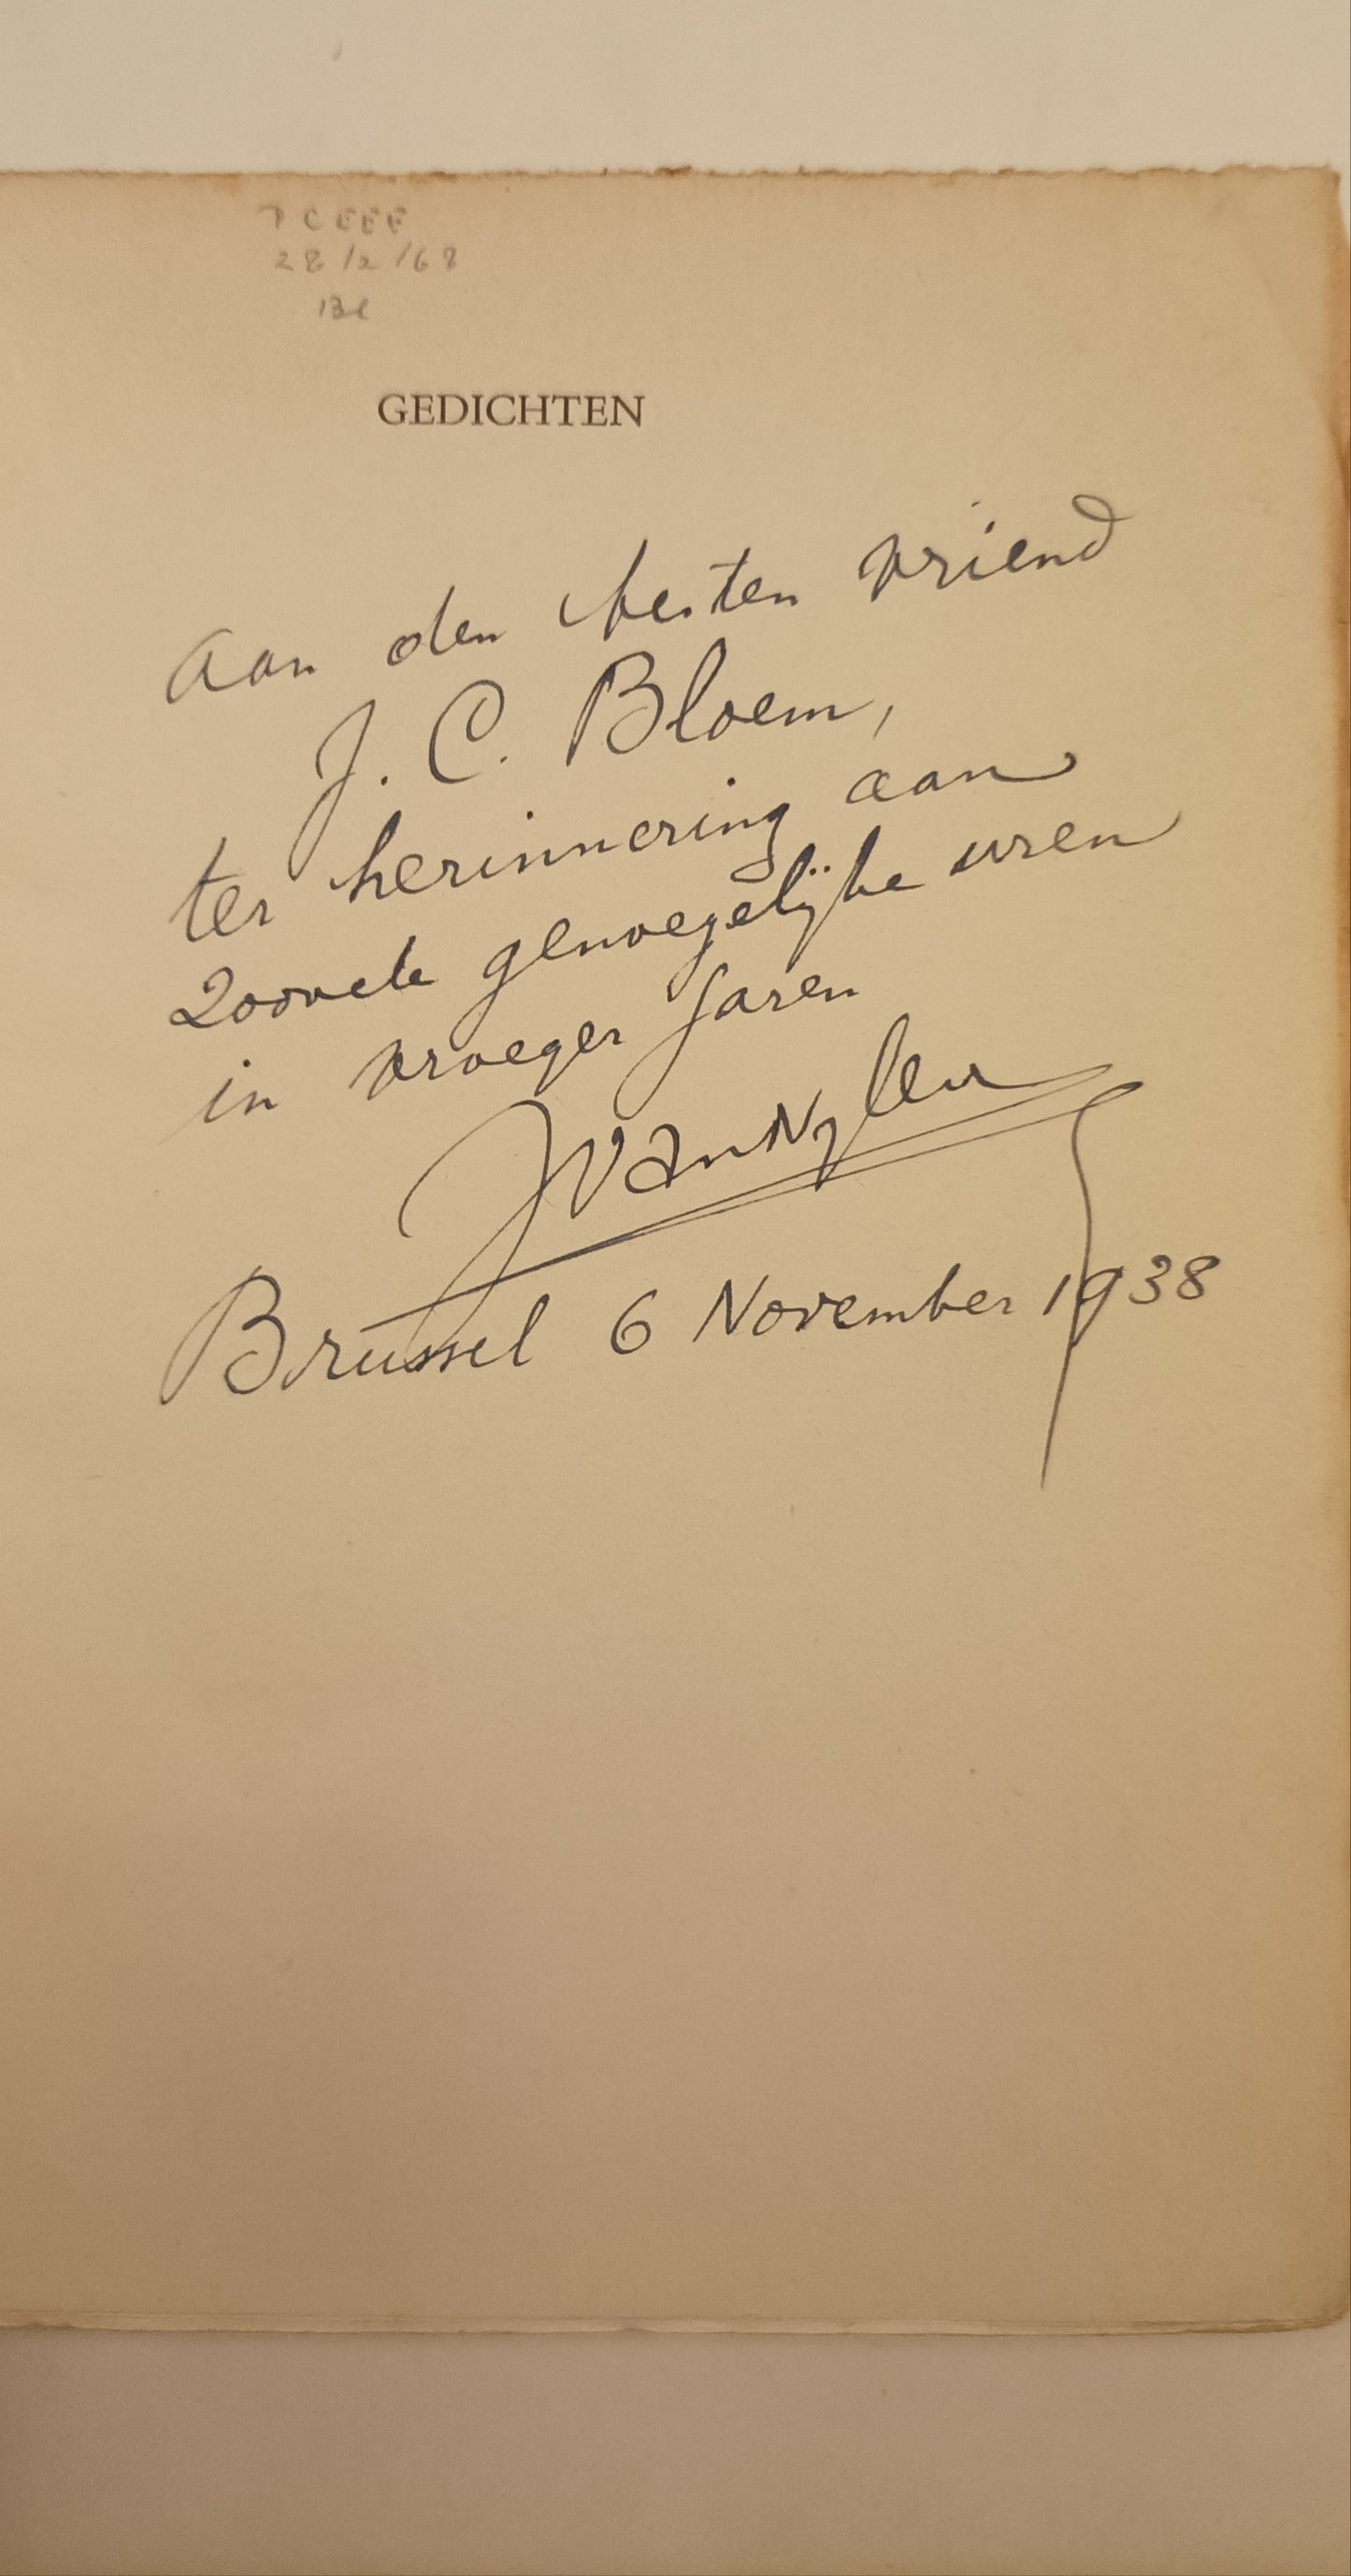 28/2/68
GEDICHTEN
Aan den besten vriend
J. C. Bloem,
ter herinnering aan
zoovele genoegelijke uren
in vroeger jaren
JvanNylen
Brussel 6 November 1938